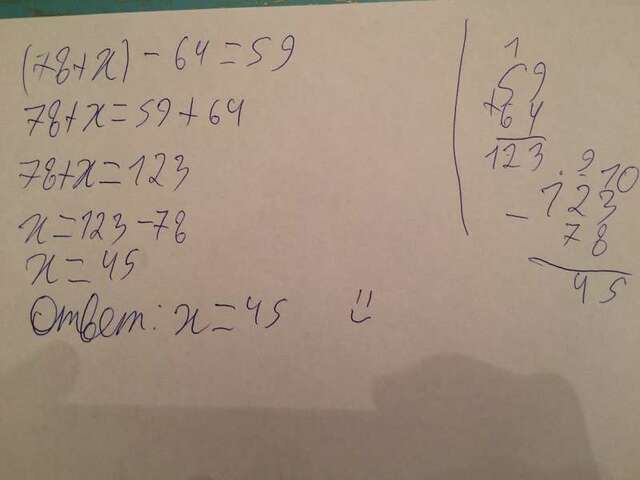 (78+x) - 64 = 59
78+x = 59 + 64
78+x = 123
x = 123 - 78
x = 45
Ответ: x = 45 :)
1
59
+64
123
. 9 10
- 123
78
45